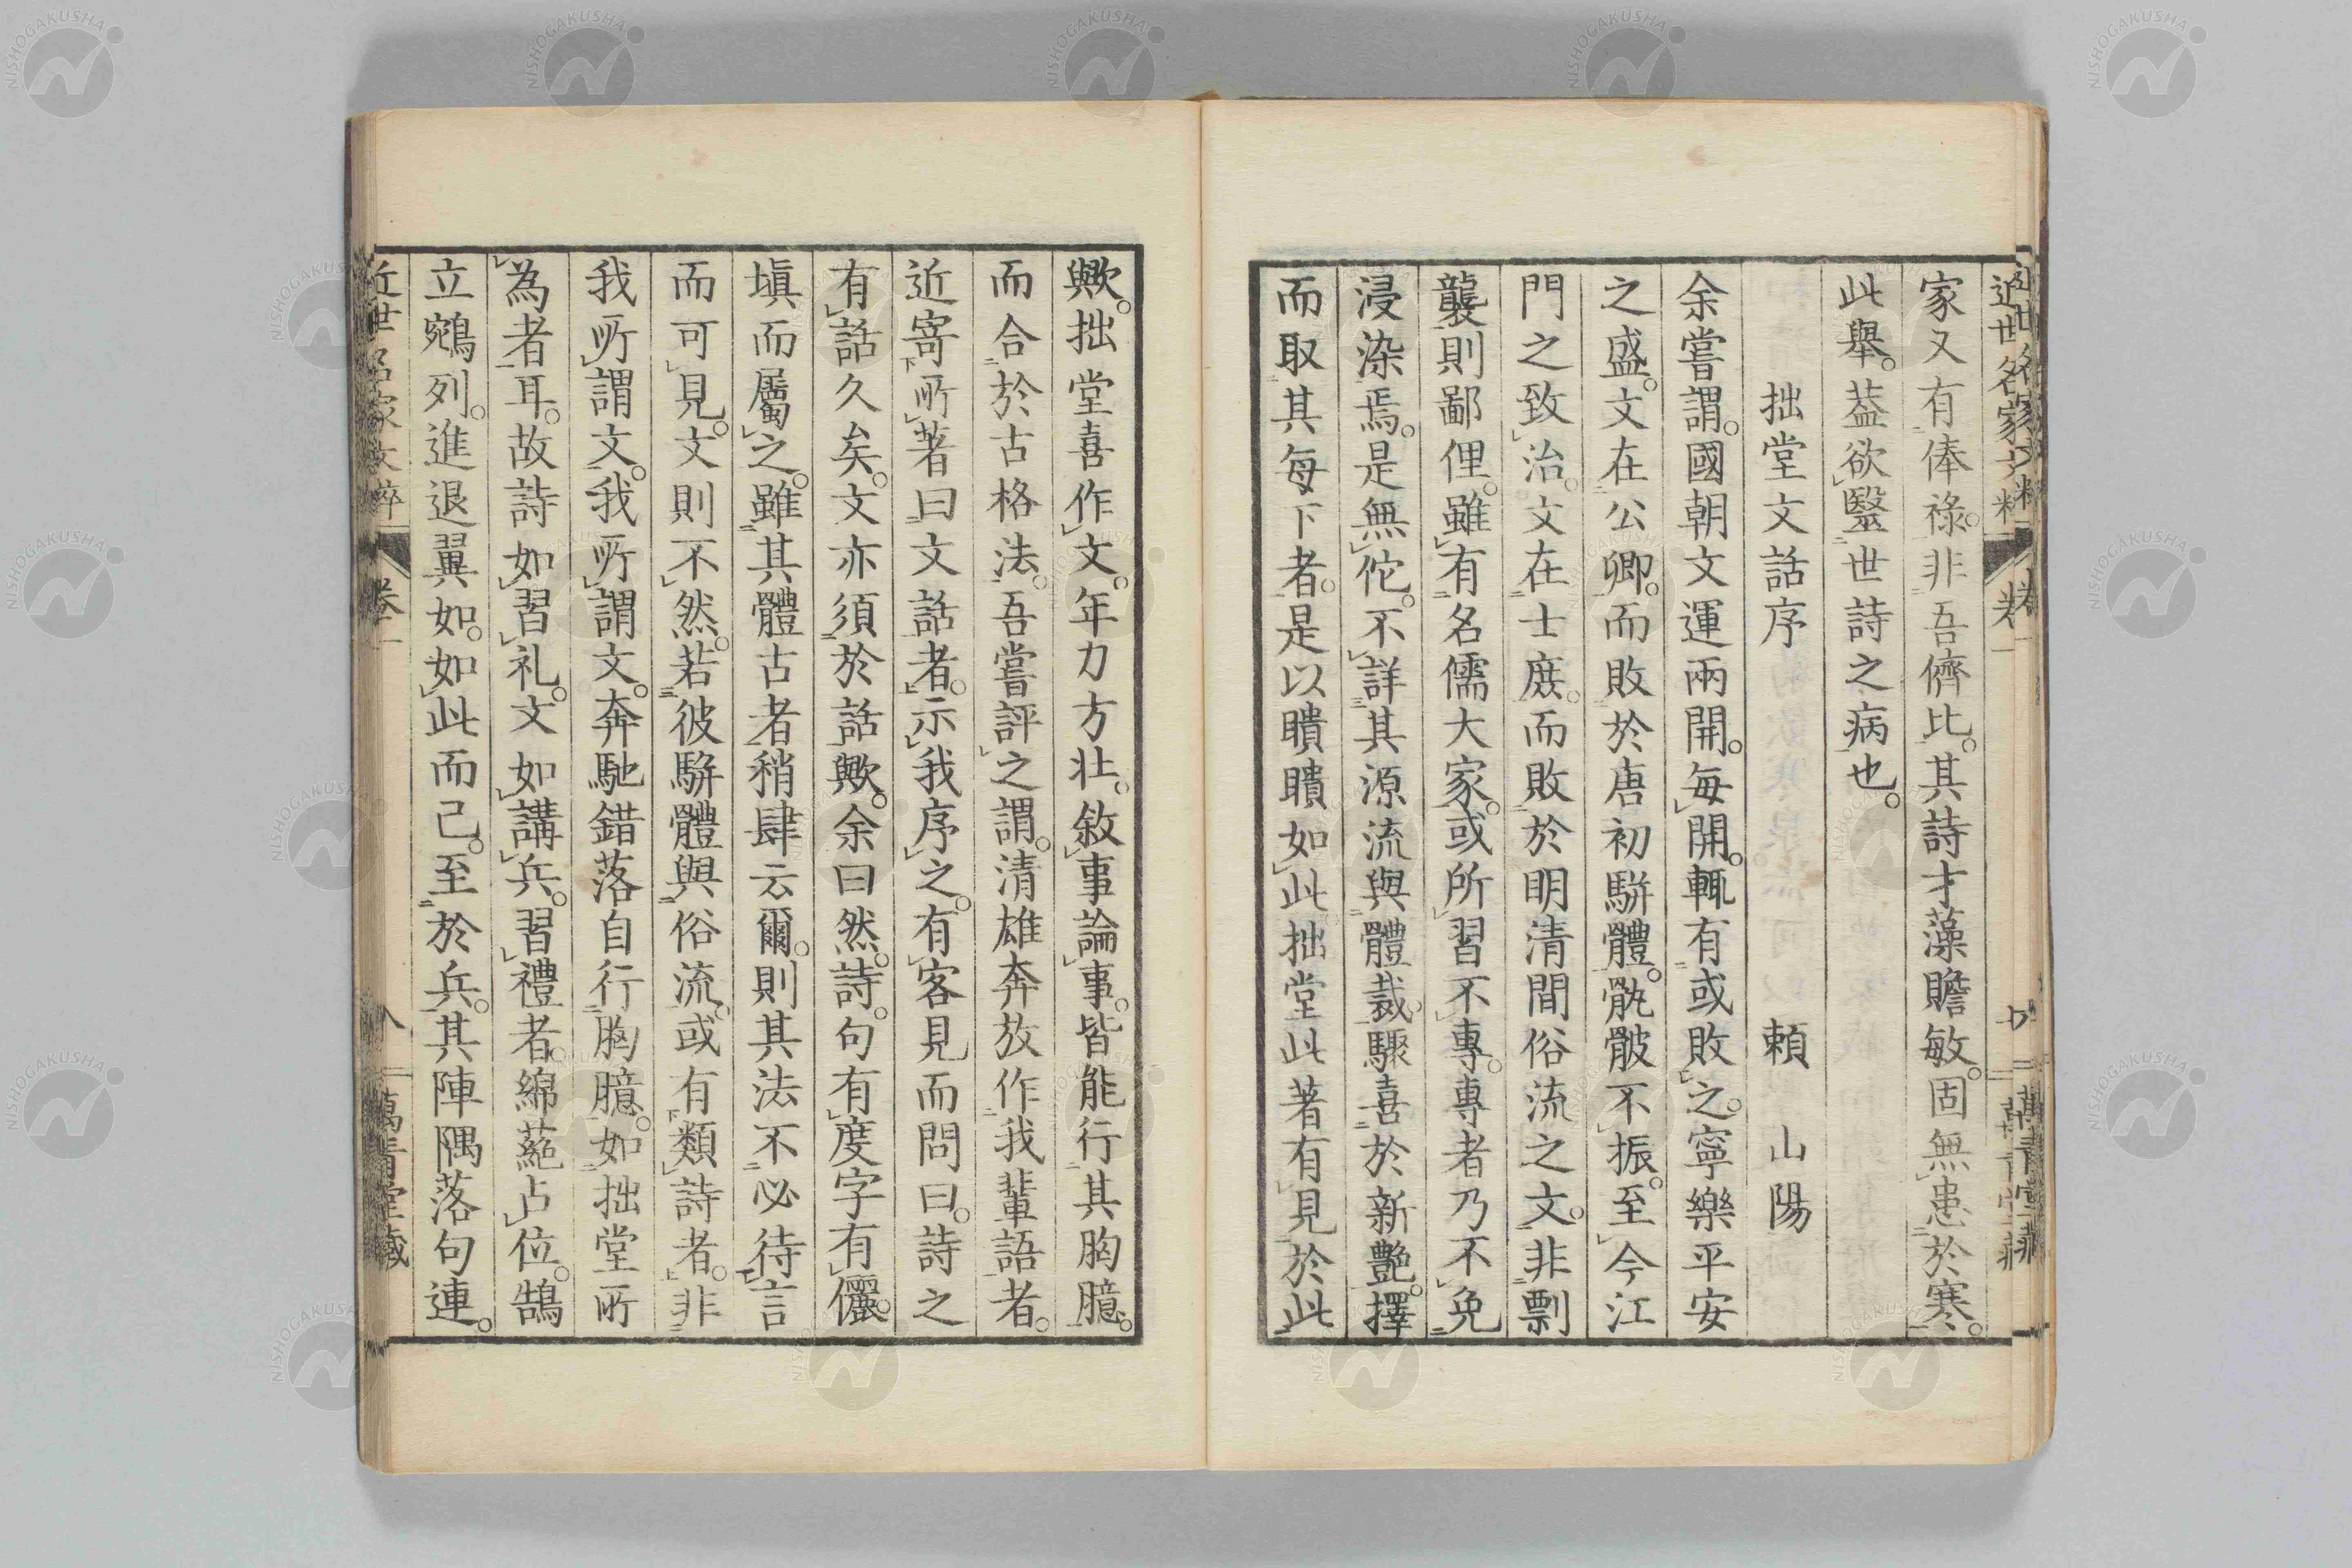 家又有俸祿。非吾儕比。其詩才藻贍敏。固無患於寒。
此舉。葢欲醫世詩之病也。
拙堂文話序　頼山陽
余嘗謂。國朝文運兩開。每開。輒有或敗之。寧樂平安
之盛。文在公卿。而敗於唐初駢體。骫骳不振。至今江
門之致治。文在士庶。而敗於明清間俗流之文。非剽
襲則鄙俚。雖有名儒大家。或所習不專。專者乃不免
浸染焉。是無佗。不詳其源流與體裁。驟喜於新艷。擇
而取其每下者。是以瞶瞶如此拙堂此著有見於此
歟。拙堂喜作文。年力方壮。敘事論事。皆能行其胸臆。
而合於古格法。吾嘗評之謂。清雄奔放作我輩語者。
近寄所著曰文話者。示我序之。有客見而問曰。詩之
有話久矣。文亦須於話歟。余曰然。詩。句有度字有儷。
塡而屬之。雖其體古者稍肆云爾。則其法不必待言
而可見。文則不然。若彼駢體與俗流。或有類詩者。非
我所謂文。我所謂文。奔馳錯落自行胸臆。如拙堂所
為者耳。故詩如習礼。文如講兵。習禮者。綿蕝占位。鵠
立鵷列。進退翼如。如此而己。至於兵。其陣隅落句連。
近世名家文粹　卷一　八　萬青堂藏